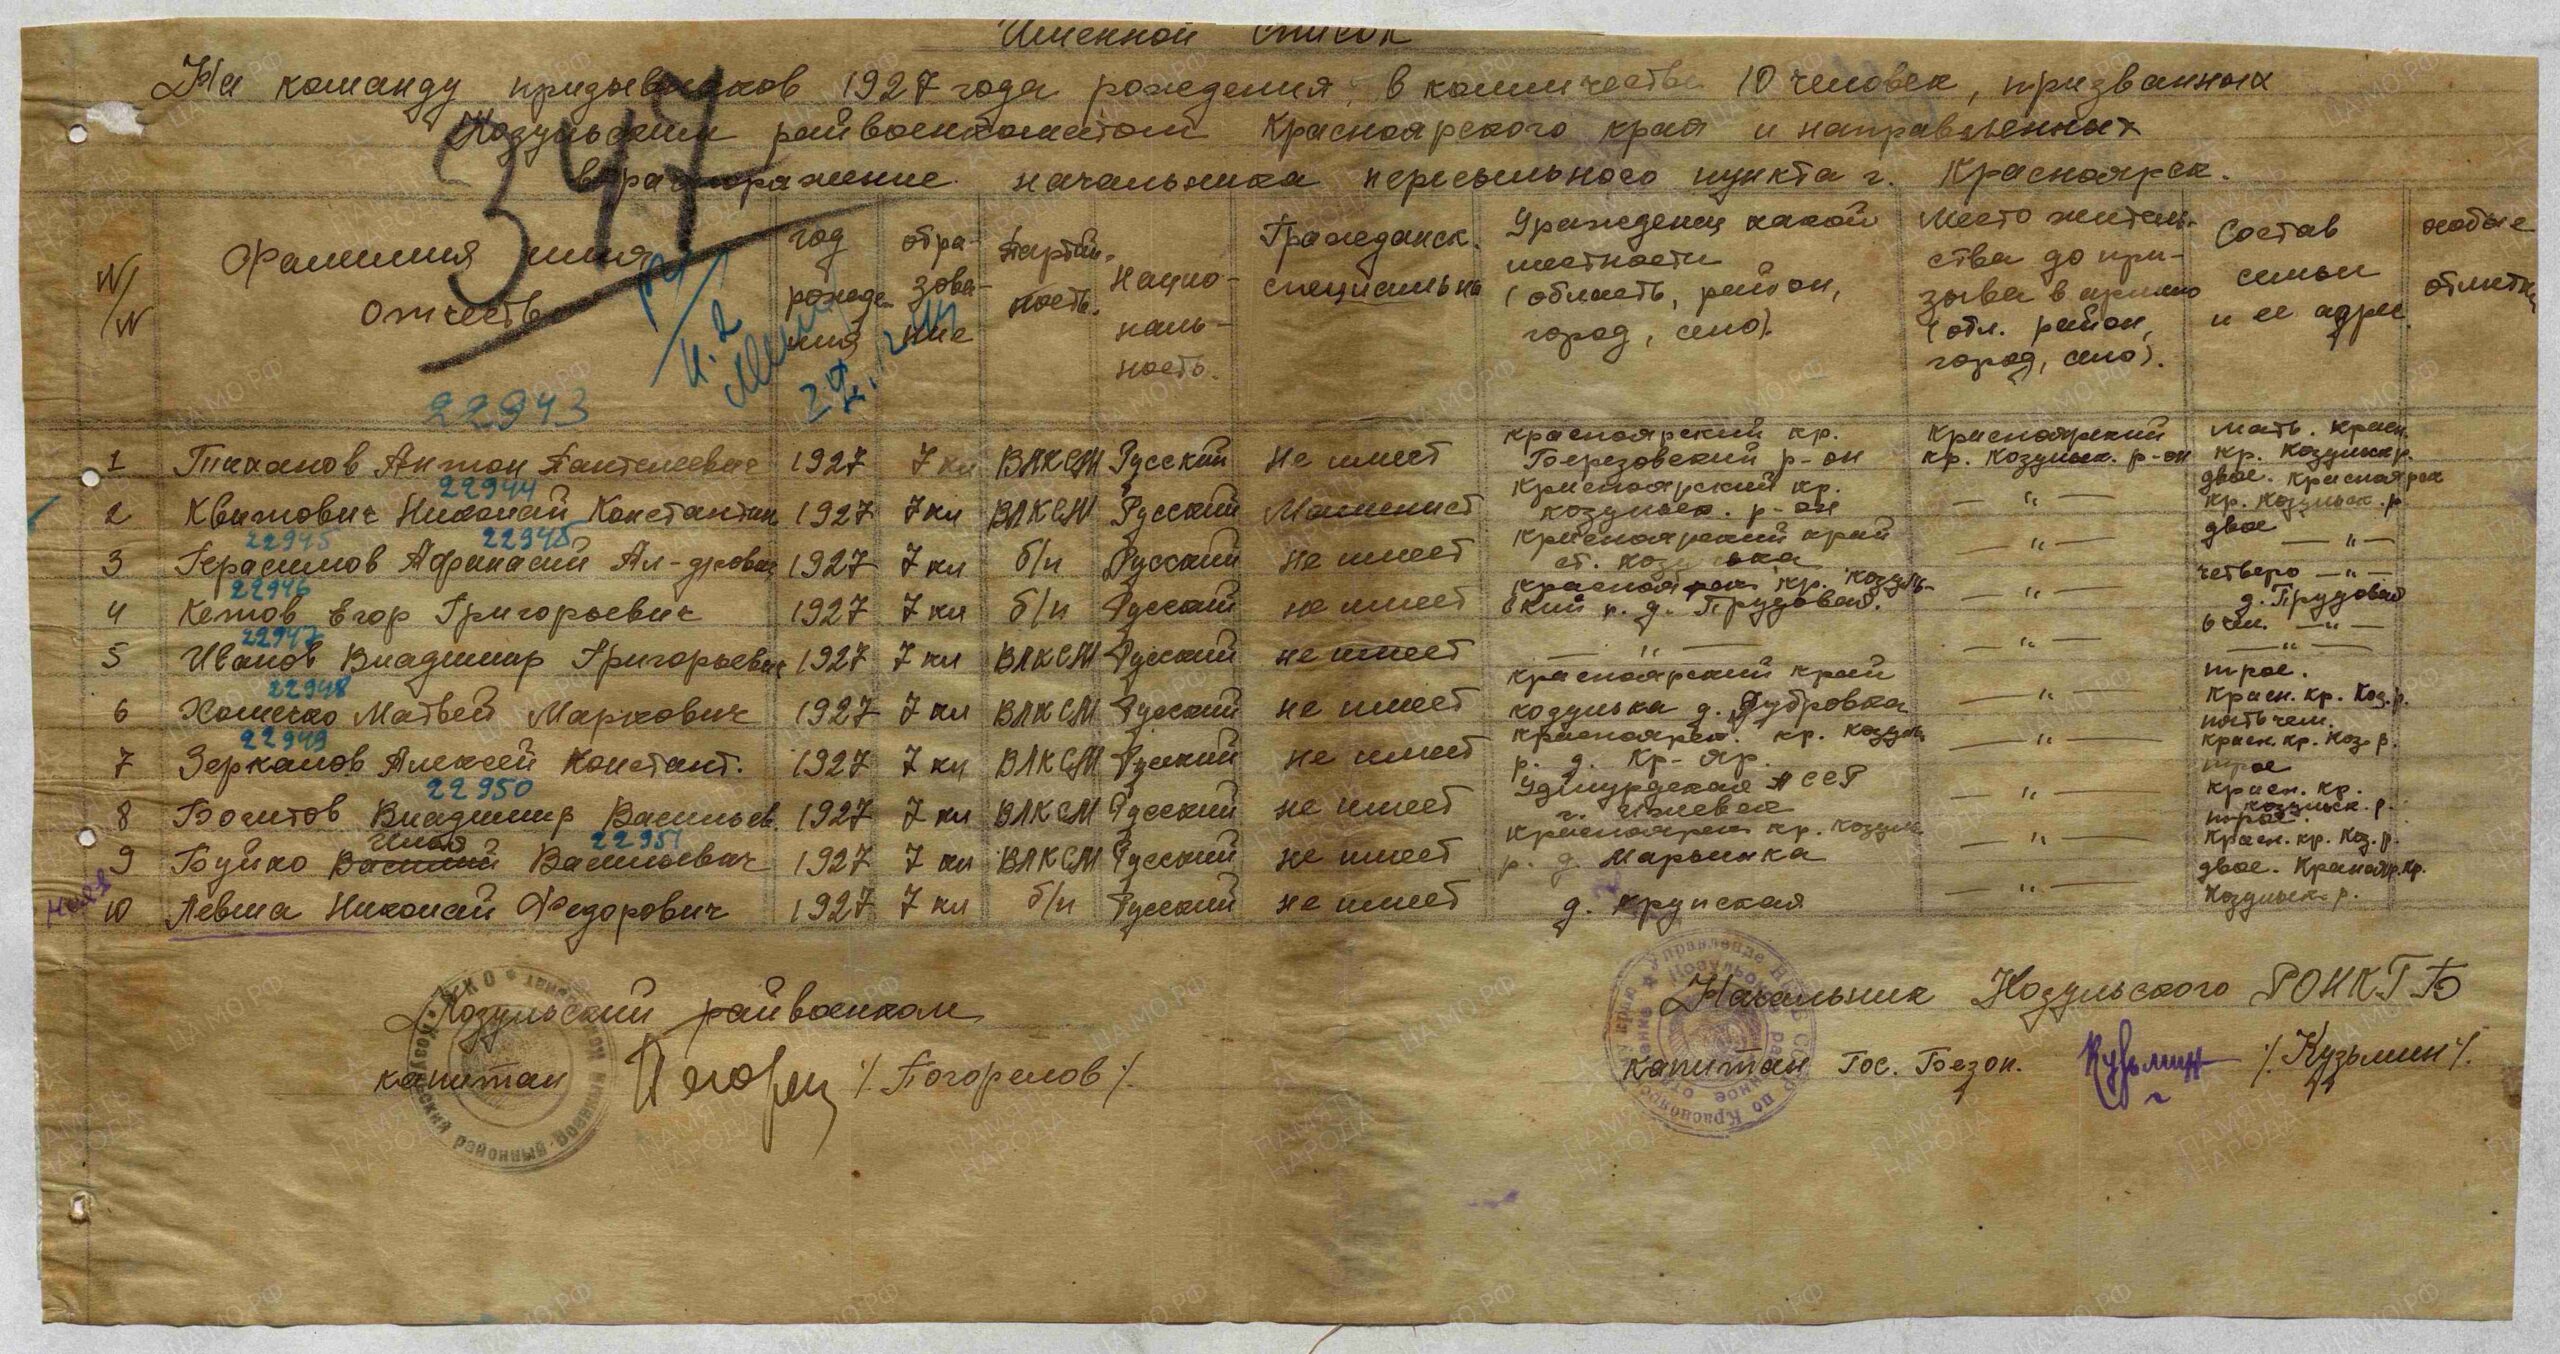 Именной список
На команду призывников 1927 года рождения, в количестве 10 человек, призванных
Козульским райвоенкоматом Красноярского края и направленных
в распоряжение начальника пересыльного пункта г. Красноярск.
347
N/N
Фамилия имя отчеств
год рожде- ния
обра- зова- ние
партий- ность.
Нацио- наль- ность.
Гражданск. специальн
Урожденец какой местности (область, район, город, село).
Место житель- ства до при- зыва в армию (обл. район, город, село).
Состав семьи и ее адрес
особые отметки
22943
1 Тиханов Антон Пантелеевич 1927 7 кл ВЛКСМ Русский Не имеет Красноярский кр. Березовский р-он Красноярский кр. Козульск. р-он Мать. Красн. кр. Козульск р.
22944
2 Квитович Николай Константин 1927 7 кл ВЛКСМ Русский Машинист Красноярский кр. Козульск. р-он — " — двое. Красноярск кр. Козульск. р.
22945 22945
3 Герасимов Афанасий Ал-дрович 1927 7 кл б/п Русский не имеет Красноярский край ст. Козулька — " — двое — " —
22946
4 Кетов Егор Григорьевич 1927 7 кл б/п Русский не имеет Красноярск. кр. Козуль- ский р. д. Трудовая. — " — четверо — " — д. Трудовая
22947
5 Иванов Владимир Григорьевич 1927 7 кл ВЛКСМ Русский не имеет — " — — " — 6 чел. — " —
22948
6 Хоменко Матвей Маркович 1927 7 кл ВЛКСМ Русский не имеет Красноярский край Козулька д. Дубровка — " — трое. Красн. кр. Коз. р.
22949
7 Зерканов Алексей Констант. 1927 7 кл ВЛКСМ Русский не имеет Красноярск. кр. Козуль р. д. Кр-Яр. — " — пять чел. Красн. кр. Коз. р.
22950
8 Богитов Владимир Васильев. 1927 7 кл ВЛКСМ Русский не имеет Удмурдская АССР г. Ижевск — " — трое Красн. кр. Козульск. р.
22951
9 Буйко Василий Илья Васильевич 1927 7 кл ВЛКСМ Русский не имеет Красноярск кр. Козульк р. д. Марьинка — " — трое. Красн. кр. Коз. р.
10 Левша Николай Федорович 1927 7 кл б/п Русский не имеет д. Крупская — " — двое. Краснояр. кр. Козульск. р.
Козульский райвоенком
капитан /Погорелов/.
Начальник Козульского РОНКГБ
капитан Гос. Безоп. Кузьмин /Кузьмин/.
ПАМЯТЬ НАРОДА
ЦАМО.РФ